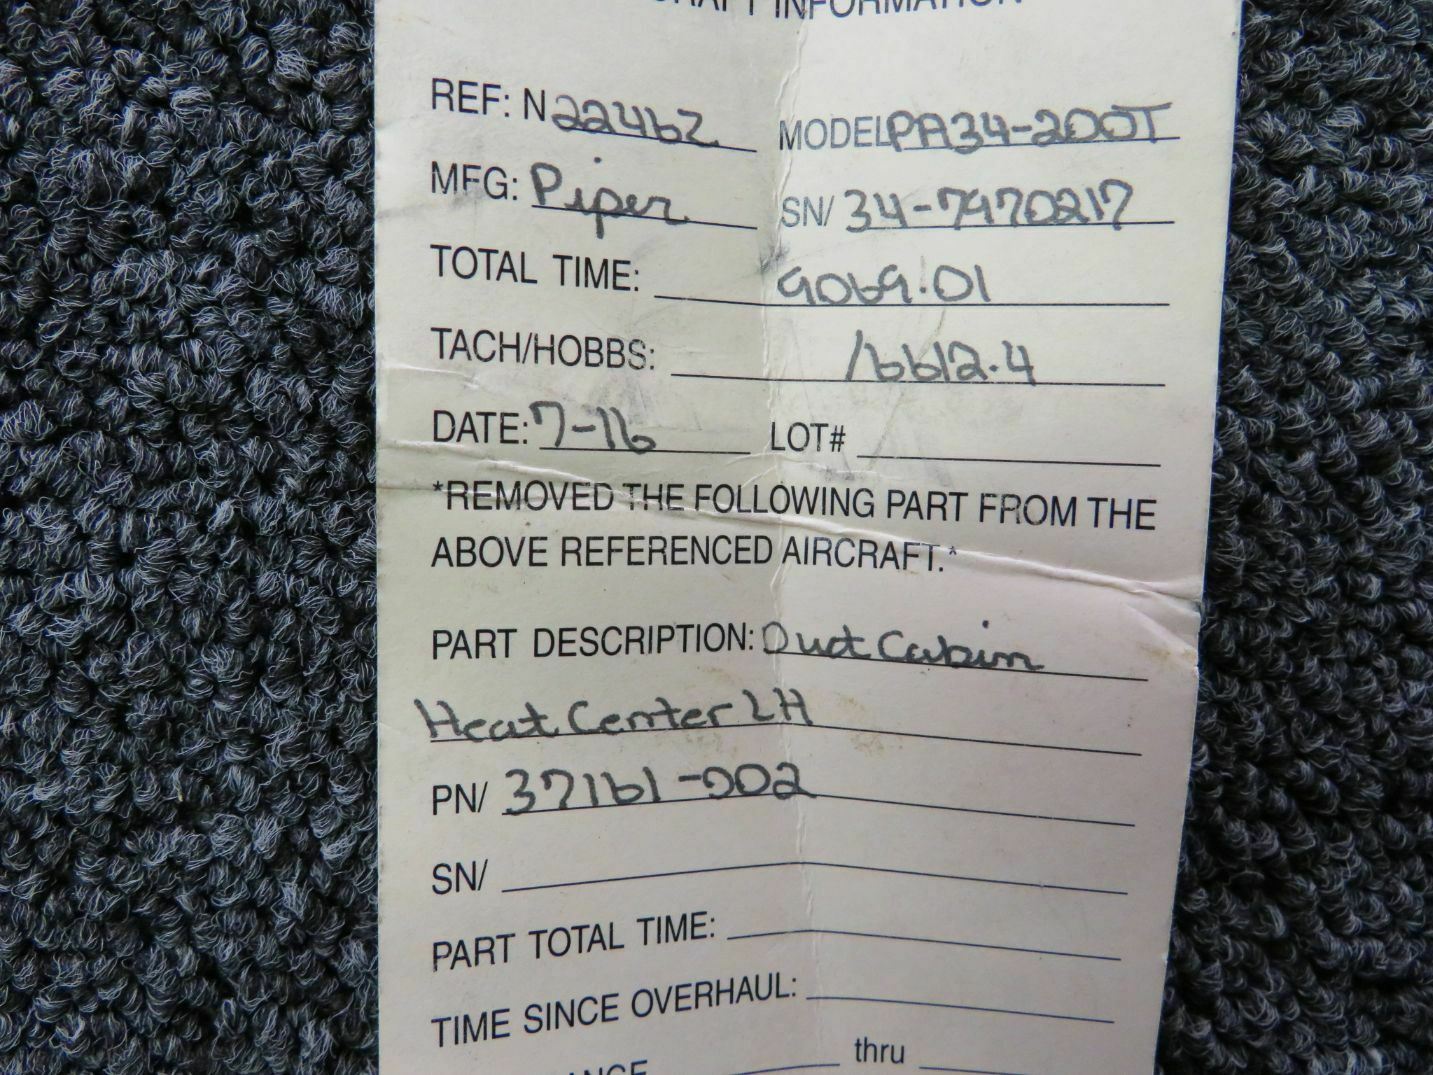 AIRCRAFT INFORMATION
REF: N 22467 MODEL PA34-200T
MFG: Piper SN/ 34-7970217
TOTAL TIME: 9069.01
TACH/HOBBS: /6612.4
DATE: 7-16 LOT#
*REMOVED THE FOLLOWING PART FROM THE
ABOVE REFERENCED AIRCRAFT.*
PART DESCRIPTION: Duct Cabin
Heat Center LH
PN/ 37161-002
SN/
PART TOTAL TIME:
TIME SINCE OVERHAUL:
thru